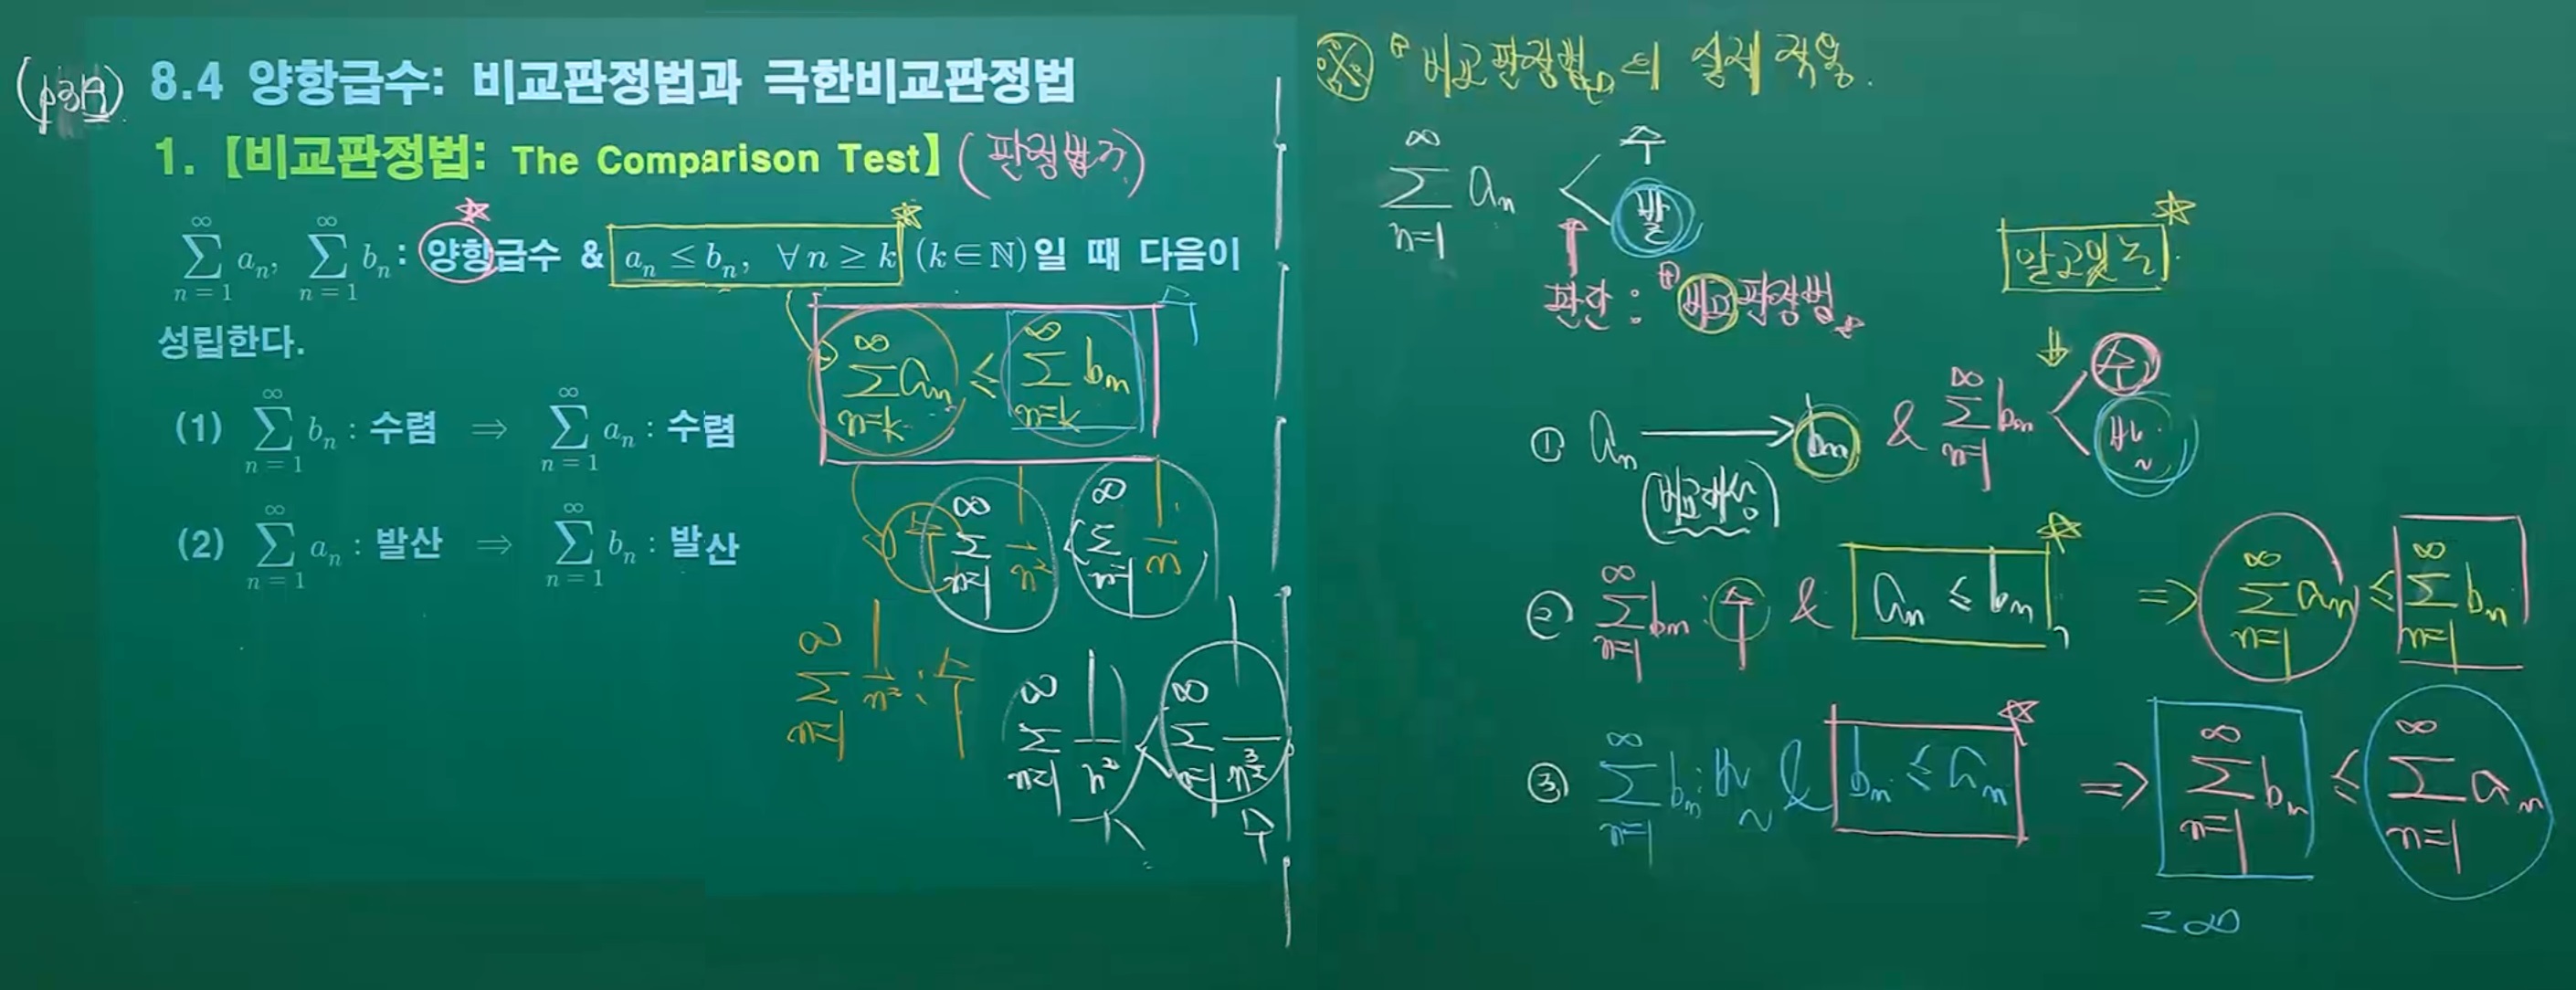 8.4 양항급수: 비교판정법과 극한비교판정법
1.【비교판정법: The Comparison Test】
∑_{n=1}^{∞} a_n, ∑_{n=1}^{∞} b_n : 양항급수 & a_n ≤ b_n, ∀n ≥ k (k∈ℕ)일 때 다음이
성립한다.
∑_{n=k}^{∞} a_n ≤ ∑_{n=k}^{∞} b_n
(1) ∑_{n=1}^{∞} b_n : 수렴 ⇒ ∑_{n=1}^{∞} a_n : 수렴
(2) ∑_{n=1}^{∞} a_n : 발산 ⇒ ∑_{n=1}^{∞} b_n : 발산
∑_{n=1}^{∞} 1/n² < ∑_{n=1}^{∞} 1/n
∑_{n=1}^{∞} 1/n² : 수
∑_{n=1}^{∞} 1/n² < ∑_{n=1}^{∞} 1/n^{3/2}
수 수
※ "비교판정법"의 실제 적용.
∑_{n=1}^{∞} a_n < 수
발
판단 : "비교판정법"
알고있는
① a_n → b_n & ∑_{n=1}^{∞} b_n < 수
발
(비교대상)
② ∑_{n=1}^{∞} b_n : 수 & a_n ≤ b_n ⇒ ∑_{n=1}^{∞} a_n ≤ ∑_{n=1}^{∞} b_n
③ ∑_{n=1}^{∞} b_n : 발 & b_n ≤ a_n ⇒ ∑_{n=1}^{∞} b_n ≤ ∑_{n=1}^{∞} a_n
= ∞